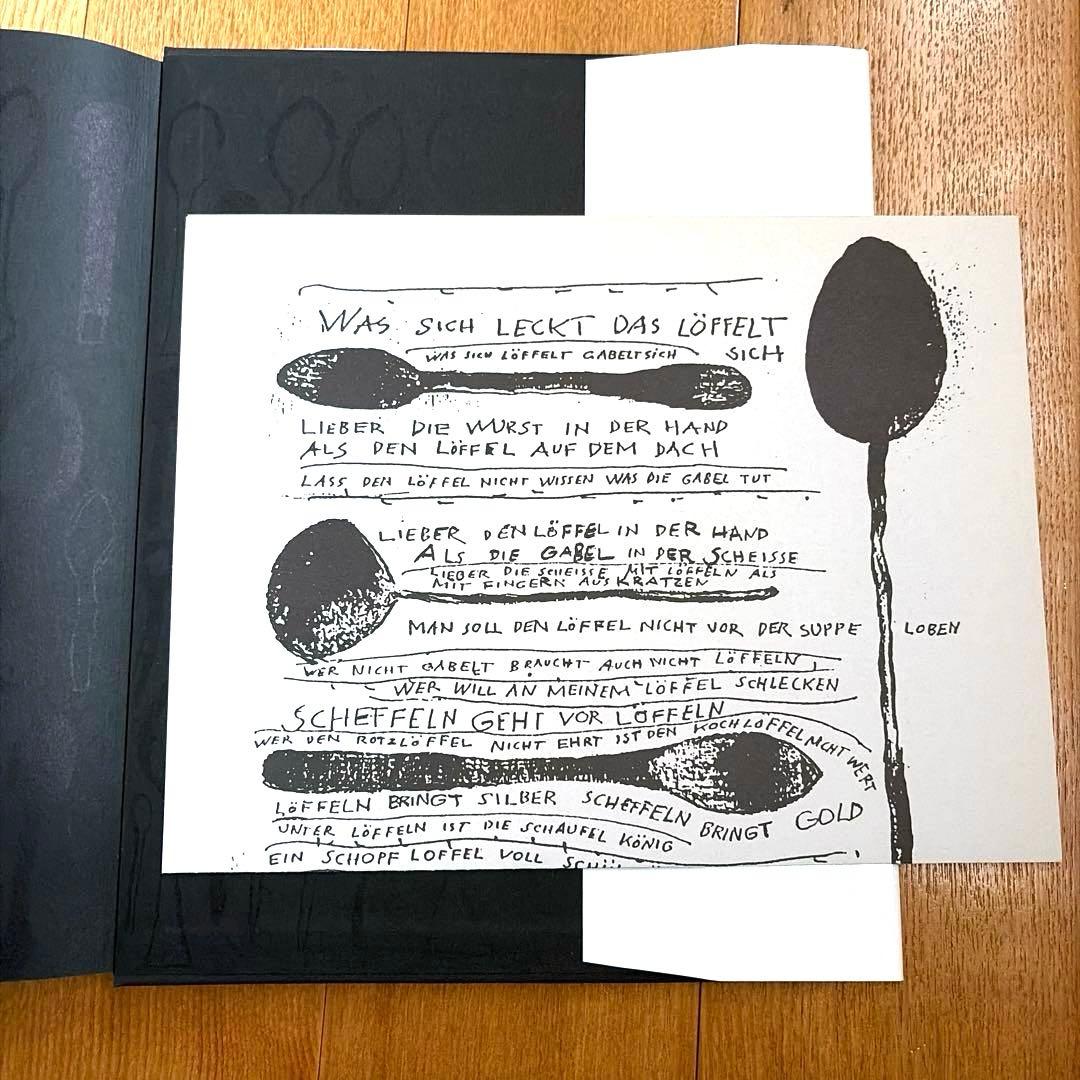 WAS SICH LECKT DAS LÖFFELT
SICH
WAS SICH LÖFFELT GABELT SICH
LIEBER DIE WURST IN DER HAND
ALS DEN LÖFFEL AUF DEM DACH
LASS DEN LÖFFEL NICHT WISSEN WAS DIE GABEL TUT
LIEBER DEN LÖFFEL IN DER HAND
ALS DIE GABEL IN DER SCHEISSE
LIEBER DIE SCHEISSE MIT LÖFFELN ALS
MIT FINGERN AUSKRATZEN
MAN SOLL DEN LÖFFEL NICHT VOR DER SUPPE LOBEN
WER NICHT GABELT BRAUCHT AUCH NICHT LÖFFELN
WER WILL AN MEINEM LÖFFEL SCHLECKEN
SCHEFFELN GEHT VOR LÖFFELN
WER DEN ROTZLÖFFEL NICHT EHRT IST DEN KOCHLÖFFEL NICHT WERT
LÖFFELN BRINGT SILBER SCHEFFELN BRINGT GOLD
UNTER LÖFFELN IST DIE SCHAUFEL KÖNIG
EIN SCHOPF LÖFFEL VOLL